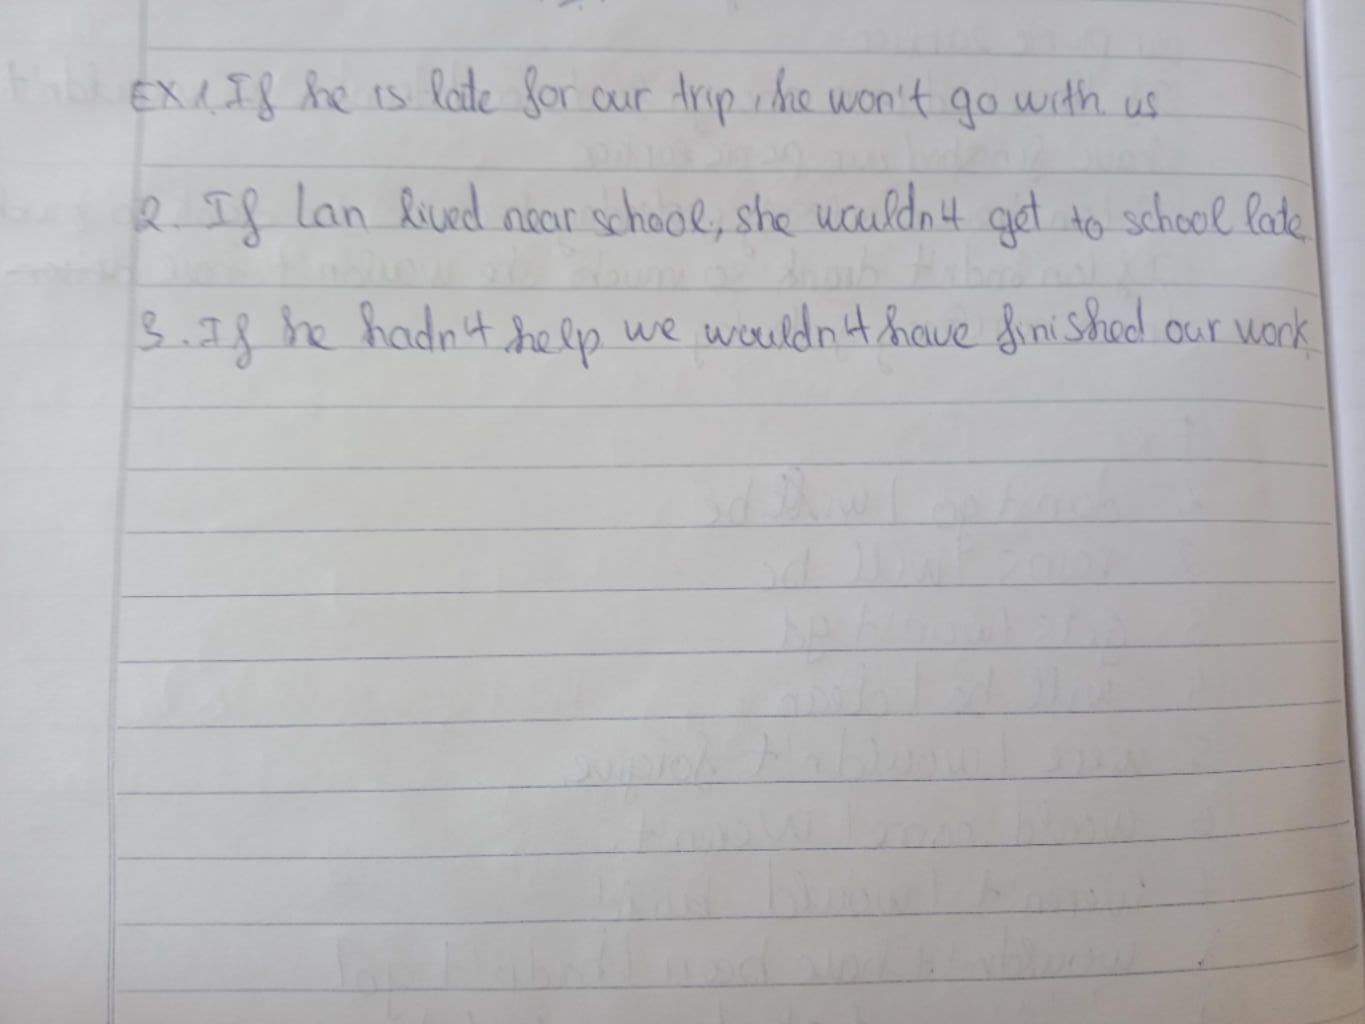 Ex 1. If he is late for our trip, he won't go with us
2. If Lan lived near school, she wouldn't get to school late
3. If he hadn't help we wouldn't have finished our work.